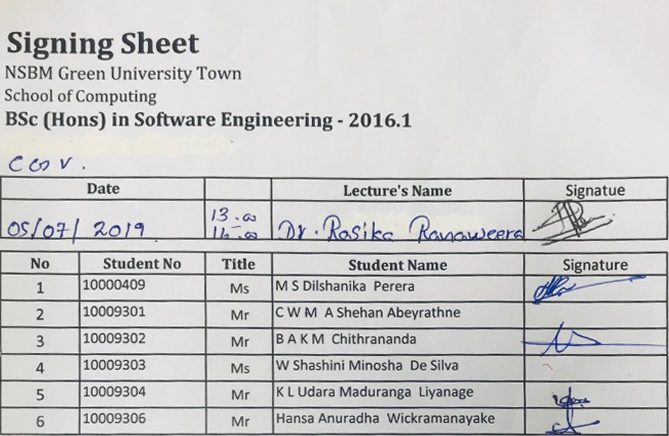 Signing Sheet
NSBM Green University Town
School of Computing
BSc (Hons) in Software Engineering - 2016.1
Date Lecture's Name Signatue
05/07/ 2019 13.00 Dr. Rasika Ranaweera
16.00
No Student No Title Student Name Signature
1 10000409 Ms M S Dilshanika Perera
2 10009301 Mr C W M A Shehan Abeyrathne
3 10009302 Mr B A K M Chithrananda
4 10009303 Ms W Shashini Minosha De Silva
5 10009304 Mr K L Udara Maduranga Liyanage
6 10009306 Mr Hansa Anuradha Wickramanayake